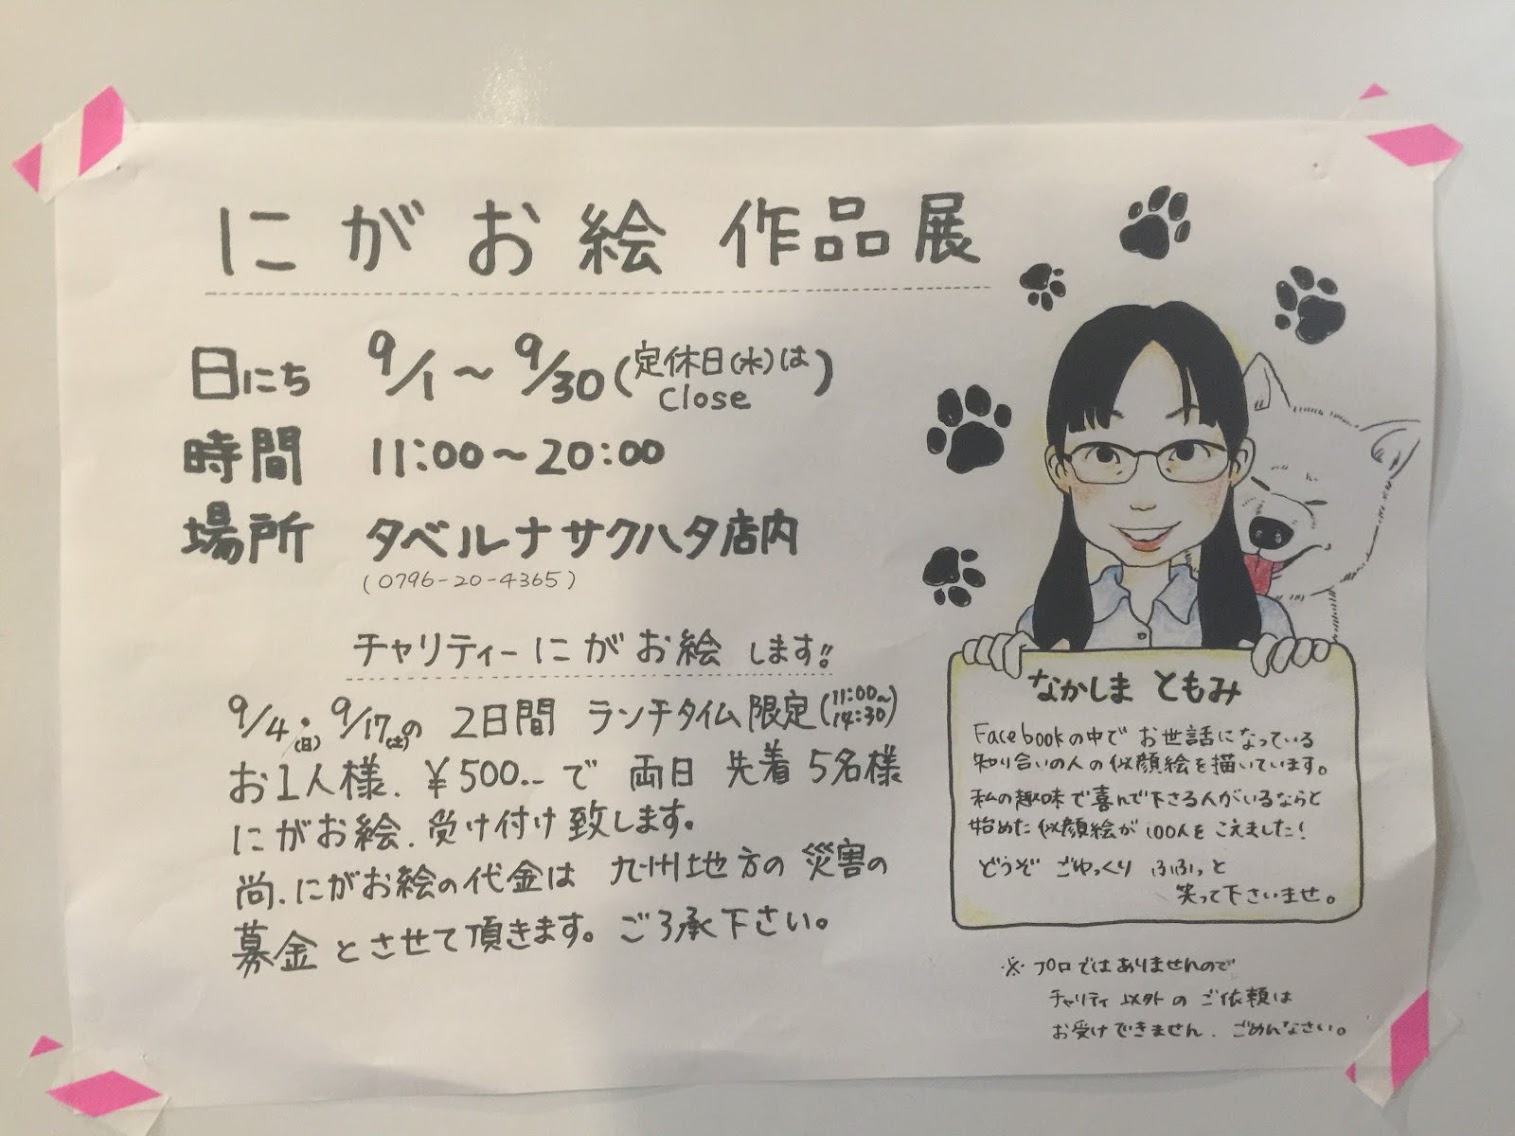 にがお絵 作品展
日にち 9/1〜9/30(定休日(水)はClose)
時間 11:00〜20:00
場所 タベルナサクハタ店内
(0796-20-4365)
チャリティーにがお絵 します!!
9/4(日)・9/17(土)の 2日間 ランチタイム限定(11:00〜14:30)
お1人様.¥500.-で 両日 先着5名様
にがお絵.受け付け致します。
尚.にがお絵の代金は 九州地方の災害の
募金とさせて頂きます。ご了承下さい。
なかしま ともみ
Facebookの中で お世話になっている
知り合いの人の似顔絵を描いています。
私の趣味で喜んで下さる人がいるならと
始めた似顔絵が100人をこえました!
どうぞ ごゆっくり ふふっと
笑って下さいませ。
※プロではありませんので
チャリティ以外のご依頼は
お受けできません.ごめんなさい。